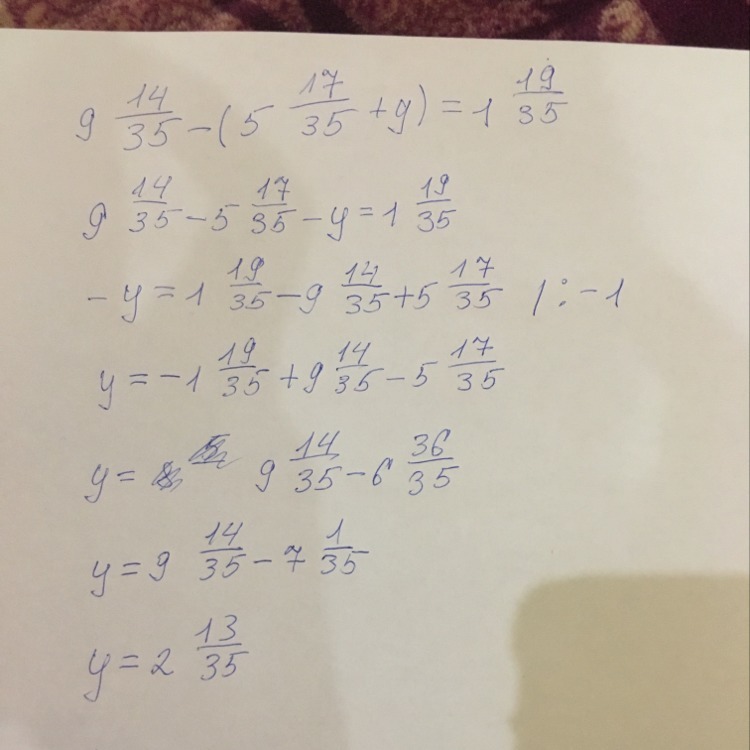 9 14/35 - (5 17/35 + y) = 1 19/35
9 14/35 - 5 17/35 - y = 1 19/35
- y = 1 19/35 - 9 14/35 + 5 17/35 | : -1
y = -1 19/35 + 9 14/35 - 5 17/35
y = 9 14/35 - 6 36/35
y = 9 14/35 - 7 1/35
y = 2 13/35